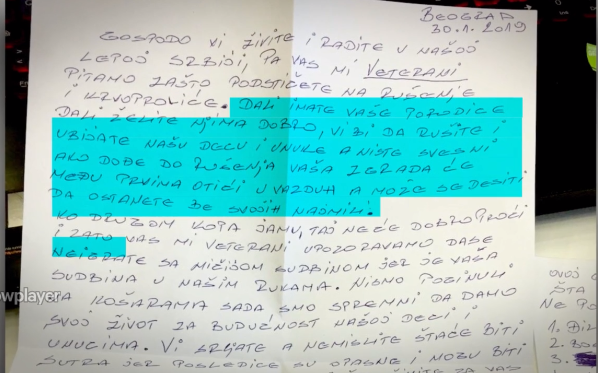 BEOGRAD
30.1.2019
GOSPODO VI ŽIVITE I RADITE U NAŠOJ
LEPOJ SRBIJI, PA VAS MI VETERANI
PITAMO ZAŠTO PODSTIČETE NA RUŠENJE
I KRVOPROLIĆE. DALI IMATE VAŠE PORODICE
DALI ŽELITE NJIMA DOBRO, VI BI DA RUŠITE I
UBIJATE NAŠU DECU I UNUKE A NISTE SVESNI
AKO DOĐE DO RUŠENJA VAŠA ZGRADA ĆE
MEĐU PRVIMA OTIĆI U VAZDUH A MOŽE SE DESITI
DA OSTANETE BE SVOJIH NAJMILI.
KO DRUGOM KOPA JAMU, TAJ NEĆE DOBRO PROĆI
I ZATO VAS MI VETERANI UPOZORAVAMO DASE
NEIGRATE SA MIČIJOM SUDBINOM JER JE VAŠA
SUDBINA U NAŠIM RUKAMA. NISMO POGINULI
NA KOŠARAMA SADA SMO SPREMNI DA DAMO
SVOJ ŽIVOT ZA BUDUĆNOST NAŠOJ DECI I
UNUCIMA. VI SRLJATE A NEMISLITE ŠTAĆE BITI
SUTRA JER POSLEDICE SU OPASNE I MOGU BITI
ZA VAS
owplayer
OVOJ
ŠTA
NE PO
1.
2.
3.